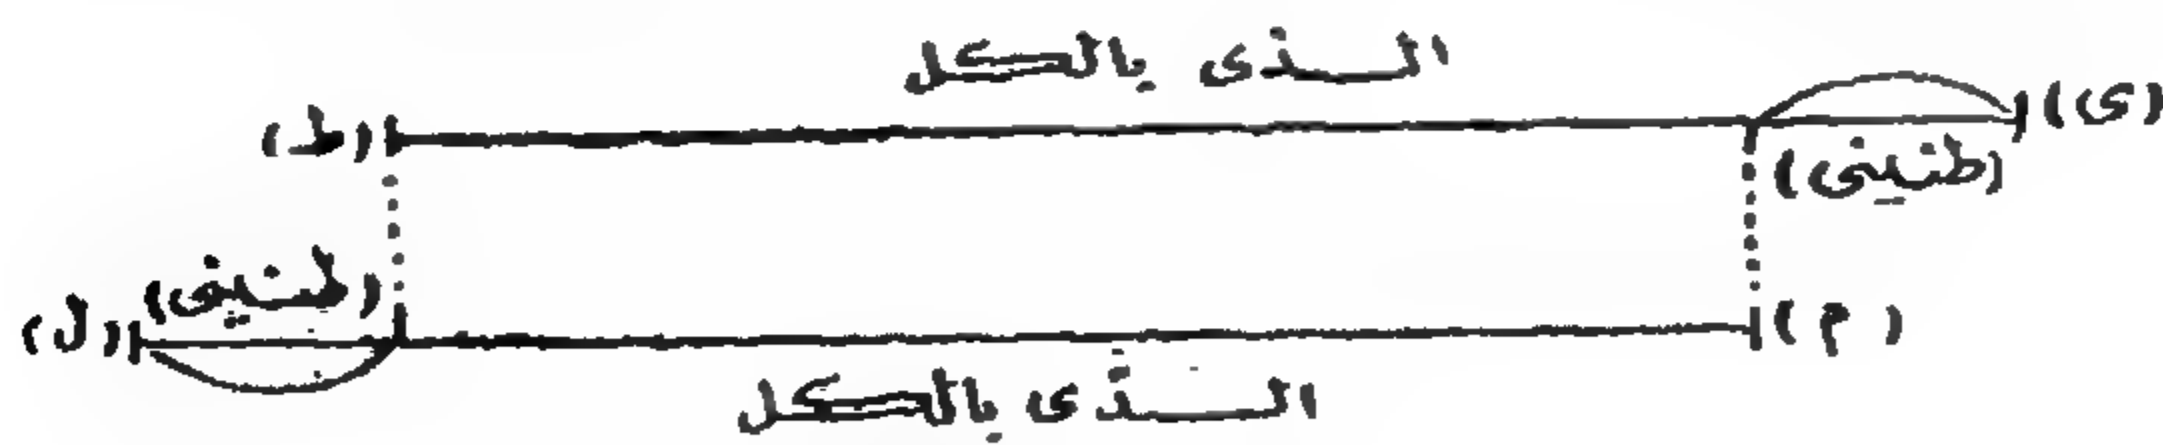 الذى بالكل
(ى) (ط)
(طنينى)
(طنينى)
(م) (ل)
الذى بالكل